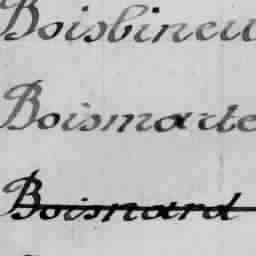 Boisbineu
Boismarte
Boisnard